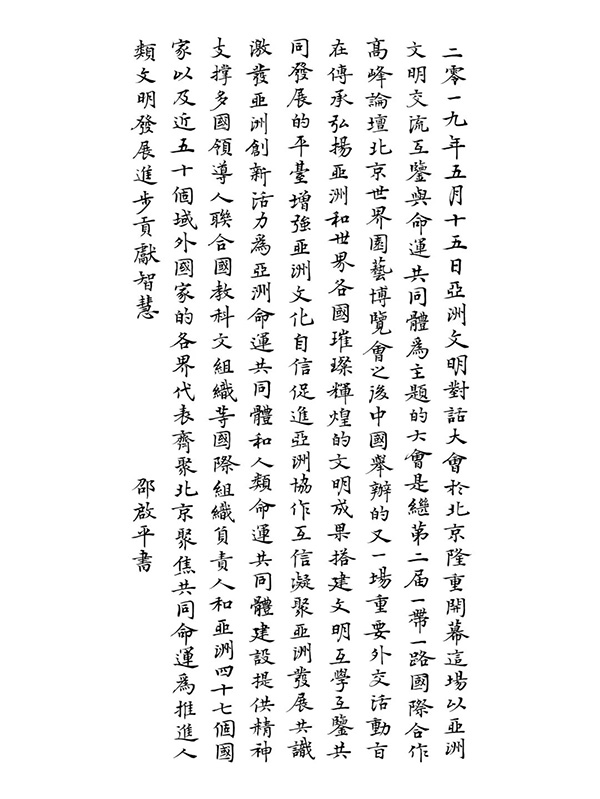 二零一九年五月十五日亞洲文明對話大會於北京隆重開幕這場以亞洲
文明交流互鑒與命運共同體爲主題的大會是繼第二届一帶一路國際合作
高峰論壇北京世界園藝博覽會之後中國舉辦的又一場重要外交活動旨
在傳承弘揚亞洲和世界各國璀璨輝煌的文明成果搭建文明互學互鑒共
同發展的平臺增強亞洲文化自信促進亞洲協作互信凝聚亞洲發展共識
激發亞洲創新活力爲亞洲命運共同體和人類命運共同體建設提供精神
支撐多國領導人聯合國教科文組織等國際組織負責人和亞洲四十七個國
家以及近五十個域外國家的各界代表齊聚北京聚焦共同命運爲推進人
類文明發展進步貢獻智慧
邵啟平書